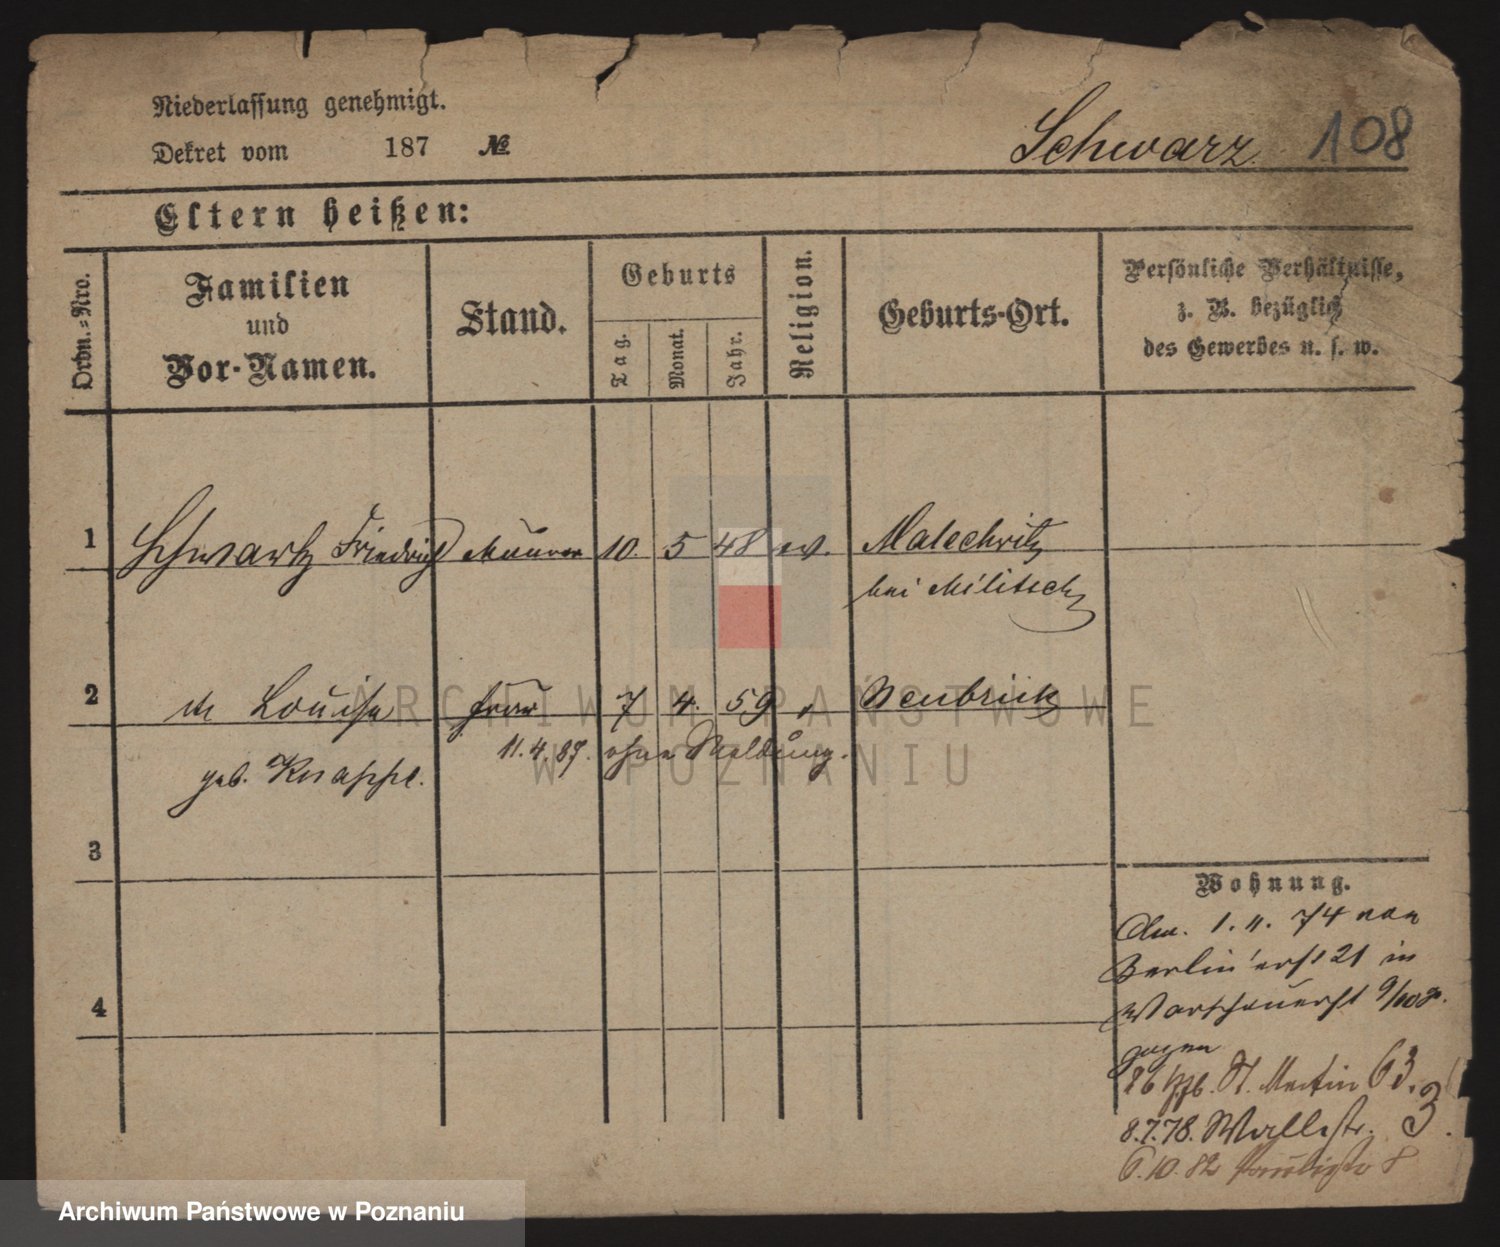 Niederlassung genehmigt.
Dekret vom 187 №
Schwarz 108
Eltern heißen:
Ordn.-Nro.
Familien
und
Vor-Namen.
Stand.
Geburts
Tag.
Monat.
Jahr.
Religion.
Geburts-Ort.
Persönliche Verhältnisse,
z. B. bezüglich
des Gewerbes u. s. w.
1 Schwartz Friedrich Maurer 10. 5 48 ev. Malschwitz
bei Militsch
2 Louise Frau 7 4. 59 " Neubrück
11.4.87. ohne Meldung.
geb. Knappe.
3
4
Wohnung.
1. 11. 74 von
Berlin 21 in
Warschauerst
gezogen
St. Martin 63.
8.7.78. Wallstr. 3.
6.10.82 8
ARCHIWUM PAŃSTWOWE
W POZNANIU
Archiwum Państwowe w Poznaniu